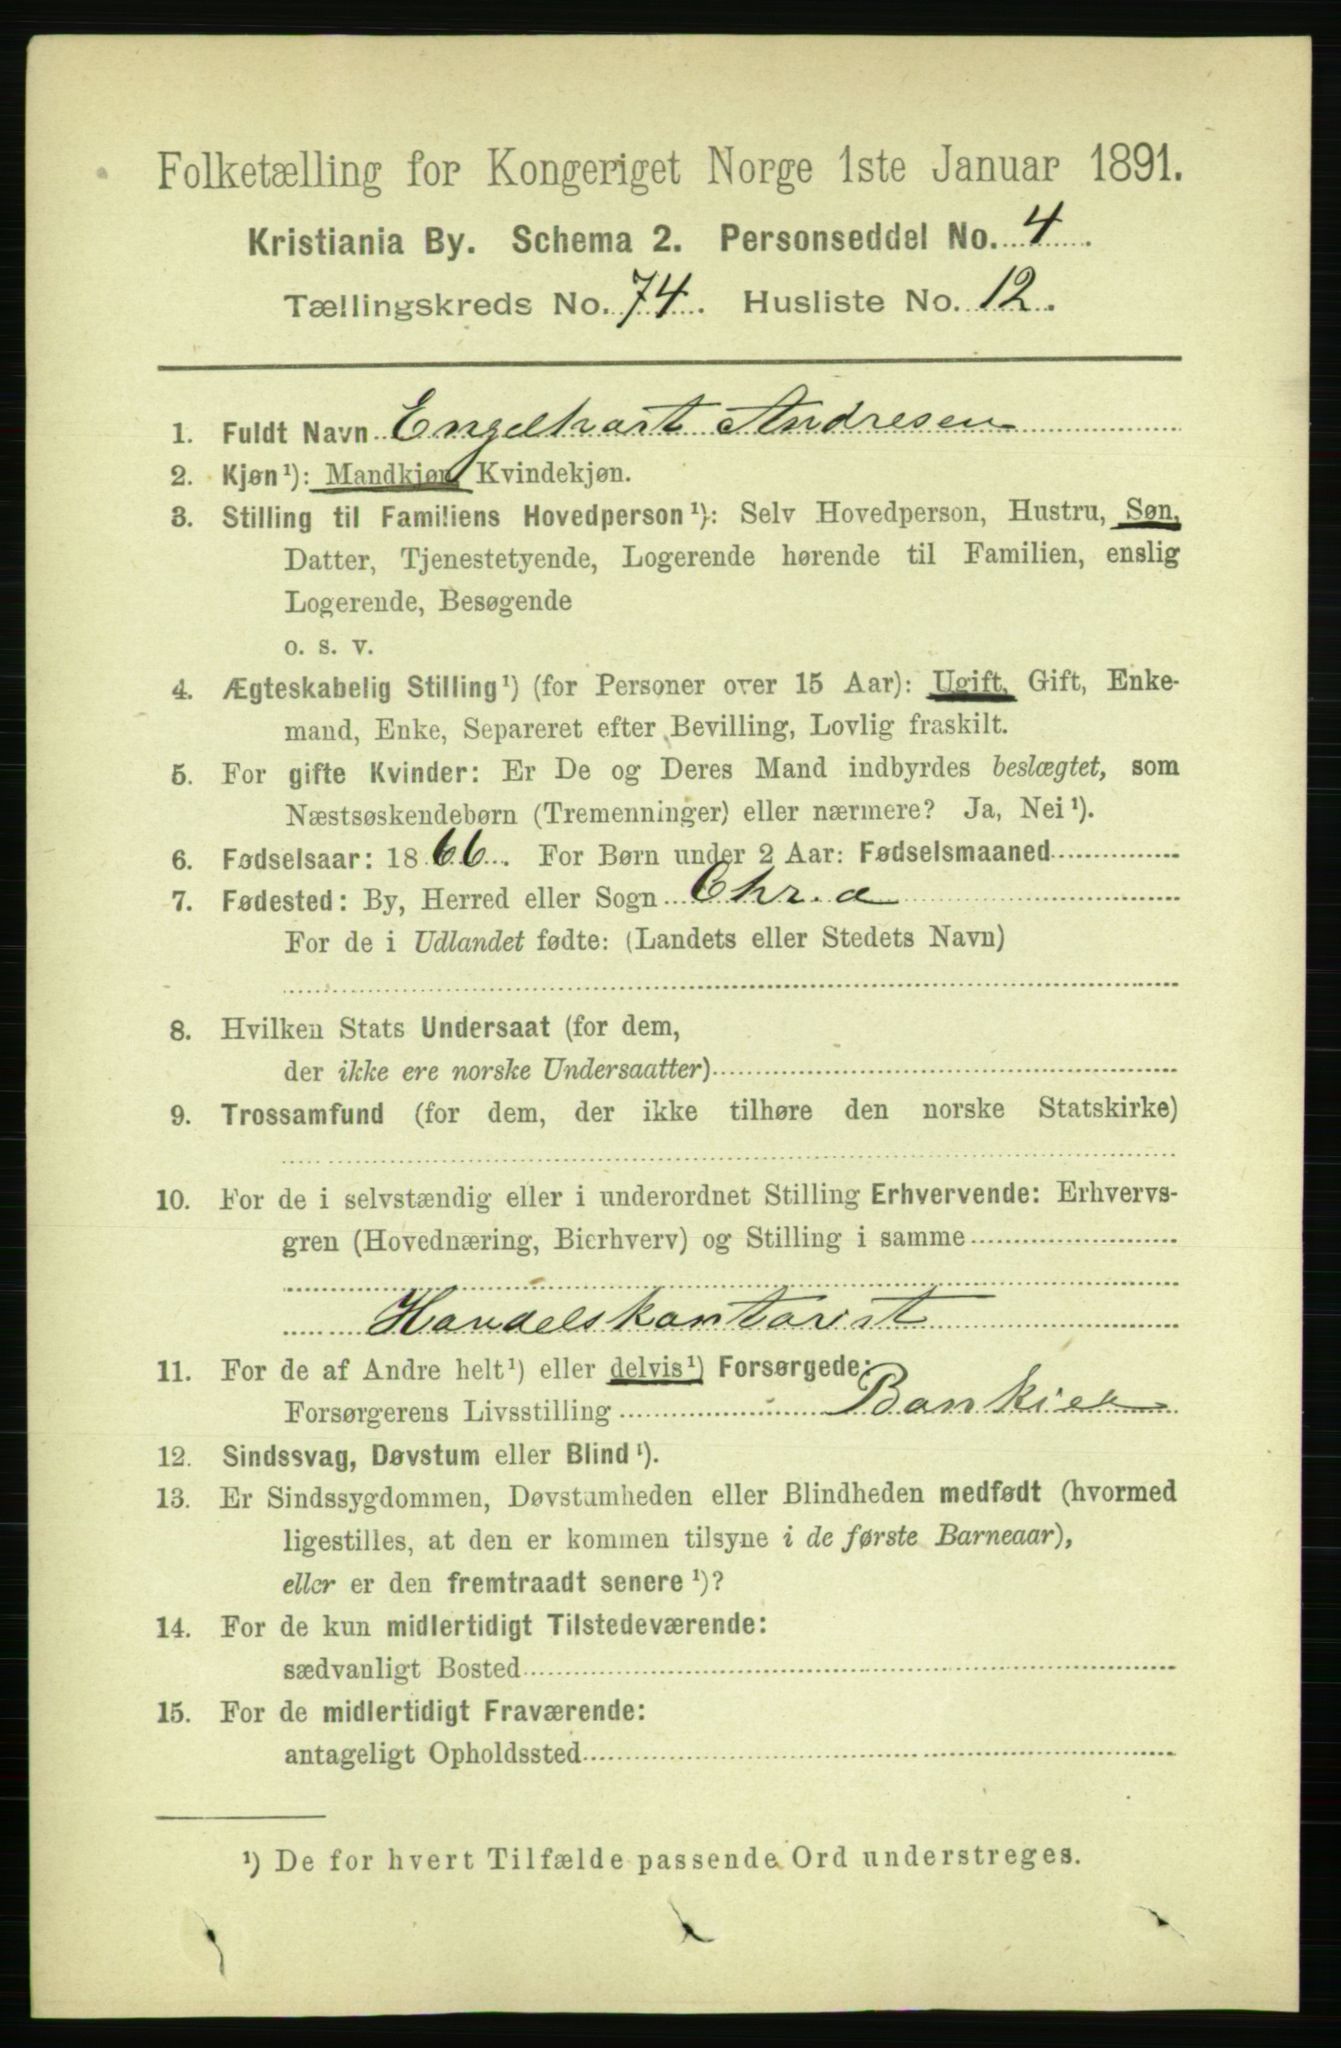 Folketælling for Kongeriget Norge 1ste Januar 1891.
Kristiania By. Schema 2. Personseddel No. 4.
Tællingskreds No. 74. Husliste No. 12.
1. Fuldt Navn Engelhart Andresen
2. Kjøn¹): Mandkjøn, Kvindekjøn.
3. Stilling til Familiens Hovedperson¹): Selv Hovedperson, Hustru, Søn,
Datter, Tjenestetyende, Logerende hørende til Familien, enslig
Logerende, Besøgende
o. s. v.
4. Ægteskabelig Stilling¹) (for Personer over 15 Aar): Ugift, Gift, Enke-
mand, Enke, Separeret efter Bevilling, Lovlig fraskilt.
5. For gifte Kvinder: Er De og Deres Mand indbyrdes beslægtet, som
Næstsøskendebørn (Tremenninger) eller nærmere? Ja, Nei¹).
6. Fødselsaar: 1866. For Børn under 2 Aar: Fødselsmaaned
7. Fødested: By, Herred eller Sogn Chr.a
For de i Udlandet fødte: (Landets eller Stedets Navn)
8. Hvilken Stats Undersaat (for dem,
der ikke ere norske Undersaatter)
9. Trossamfund (for dem, der ikke tilhøre den norske Statskirke)
10. For de i selvstændig eller i underordnet Stilling Erhvervende: Erhvervs-
gren (Hovednæring, Bierhverv) og Stilling i samme
Handelskontorist
11. For de af Andre helt¹) eller delvis¹) Forsørgede:
Forsørgerens Livsstilling Bankier
12. Sindssvag, Døvstum eller Blind¹).
13. Er Sindssygdommen, Døvstumheden eller Blindheden medfødt (hvormed
ligestilles, at den er kommen tilsyne i de første Barneaar),
eller er den fremtraadt senere¹)?
14. For de kun midlertidigt Tilstedeværende:
sædvanligt Bosted
15. For de midlertidigt Fraværende:
antageligt Opholdssted
¹) De for hvert Tilfælde passende Ord understreges.